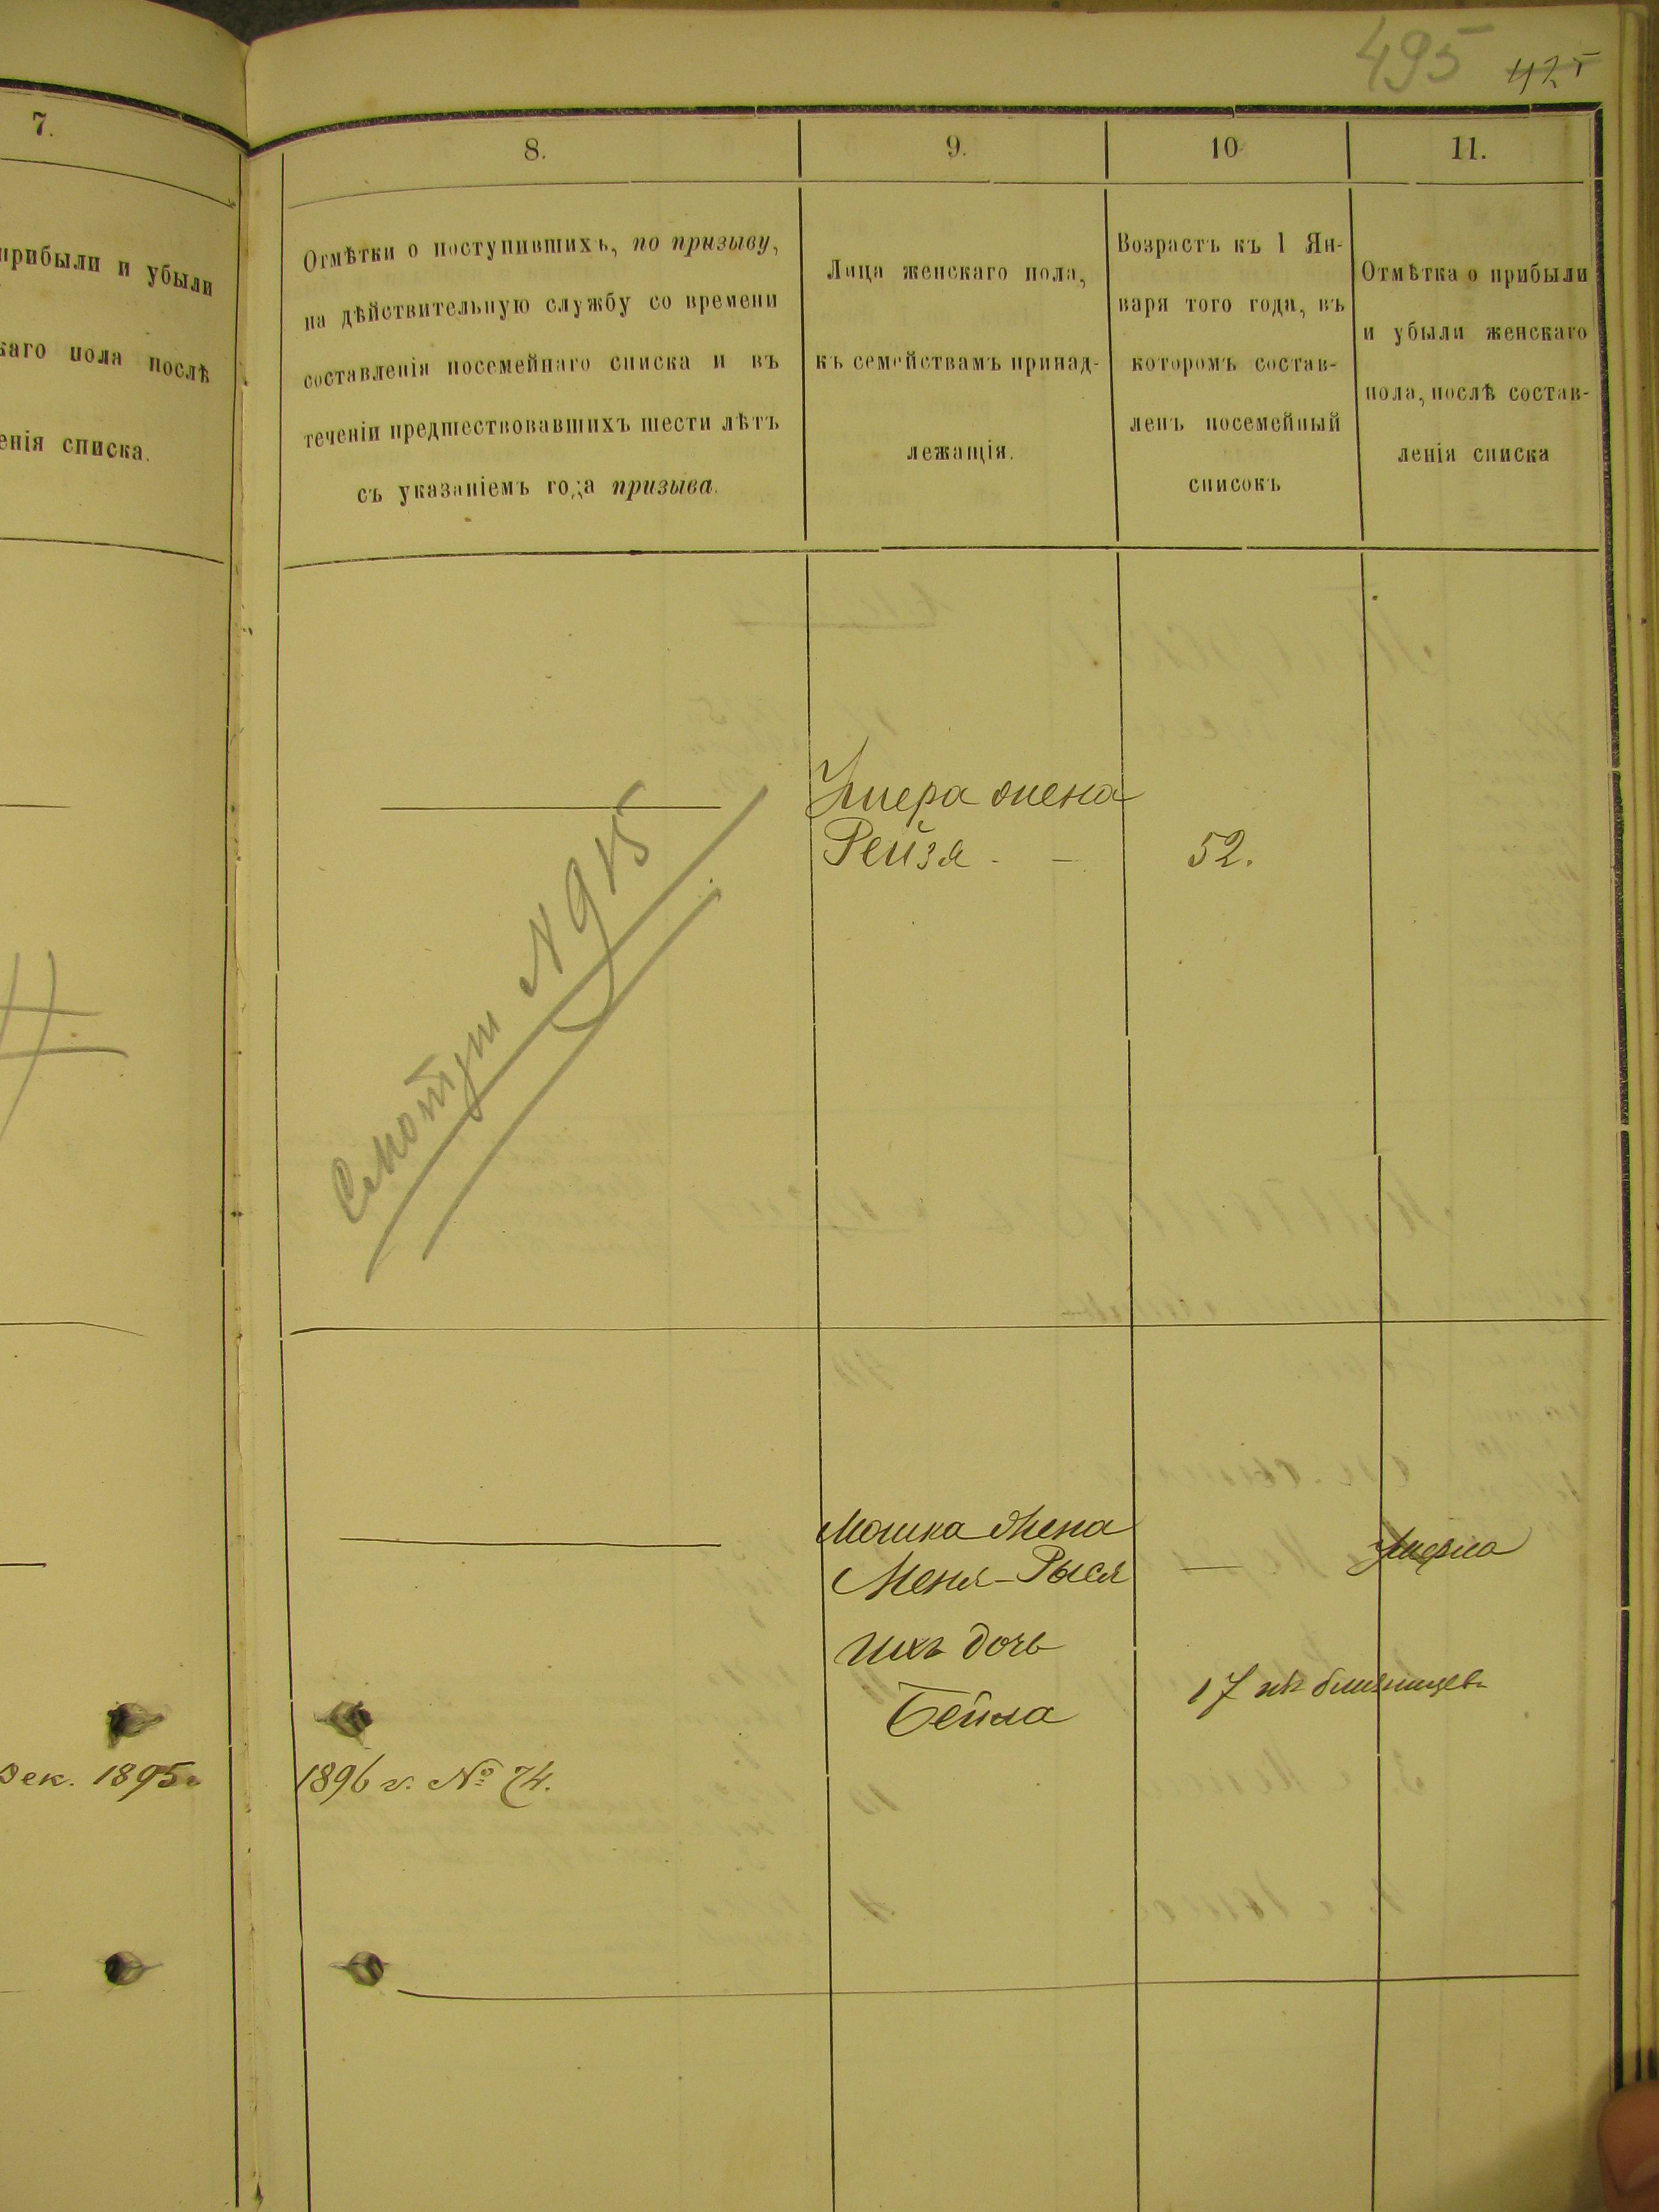 495 425
7.
прибыли и убыли
каго пола послѣ
енія списка.
дек. 1895г
8.
Отмѣтки о поступившихъ, по призыву,
на дѣйствительную службу со времени
составленія посемейнаго списка и въ
теченіи предшествовавшихъ шести лѣтъ
съ указаніемъ года призыва.
Смотри N 915
1896 г. № 74.
9.
Лица женскаго пола,
къ семействамъ принад-
лежащія.
жена
Рейзя - —
Мошка жена
Меня-Рыся
ихъ дочь
Бейла
10
Возрастъ къ 1 Ян-
варя того года, въ
которомъ состав-
ленъ посемейный
списокъ
52.
—
17 близнецевъ
11.
Отмѣтка о прибыли
и убыли женскаго
пола, послѣ состав-
ленія списка
Умерла